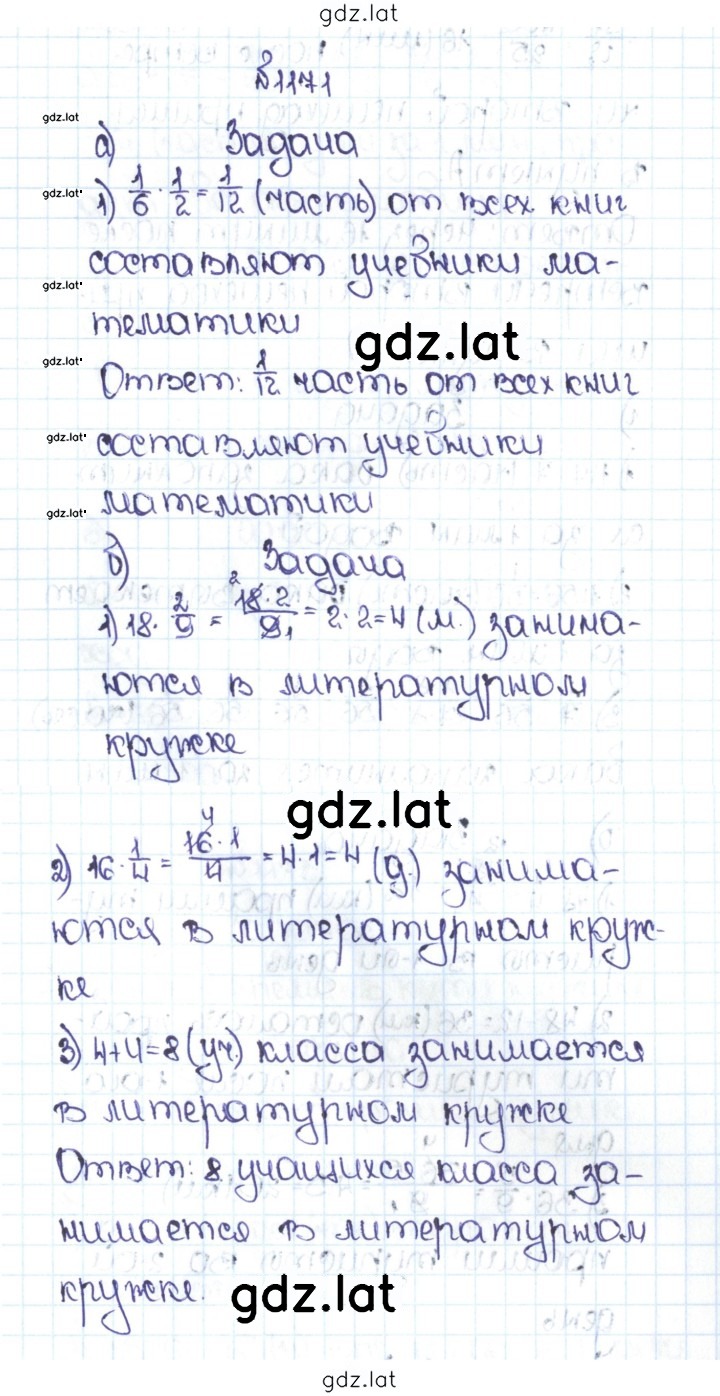 gdz.lat
№1171
gdz.lat
а) Задача
gdz.lat
1) 1/6 · 1/2 = 1/12 (часть) от всех книг
составляют учебники ма-
gdz.lat
тематики
gdz.lat
gdz.lat
Ответ: 1/12 часть от всех книг
gdz.lat
составляют учебники
gdz.lat
математики
б) Задача
1) 18 · 2/9 = 18·2/9 = 2·2=4 (м.) занима-
ются в литературном
кружке
gdz.lat
2) 16 · 1/4 = 16·1/4 = 4·1=4 (д.) занима-
ются в литературном круж-
ке
3) 4+4=8 (уч.) класса занимается
в литературном кружке
Ответ: 8 учащихся класса за-
нимается в литературном
кружке.
gdz.lat
gdz.lat